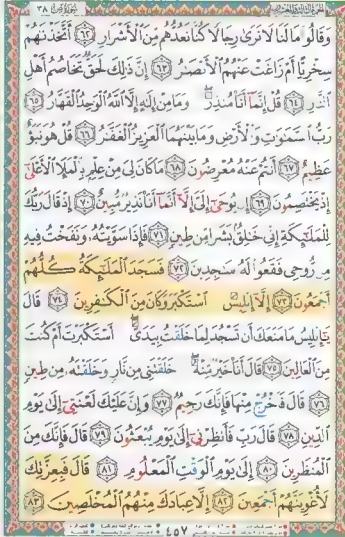 سورة ص ٣٨
وَقَالُواْ مَا لَنَا لَا نَرَىٰ رِجَالًا كُنَّا نَعُدُّهُم مِّنَ ٱلْأَشْرَارِ ٦٢ أَتَّخَذْنَٰهُمْ
سِخْرِيًّا أَمْ زَاغَتْ عَنْهُمُ ٱلْأَبْصَٰرُ ٦٣ إِنَّ ذَٰلِكَ لَحَقٌّ تَخَاصُمُ أَهْلِ
ٱلنَّارِ ٦٤ قُلْ إِنَّمَآ أَنَا۠ مُنذِرٌ ۖ وَمَا مِنْ إِلَٰهٍ إِلَّا ٱللَّهُ ٱلْوَٰحِدُ ٱلْقَهَّارُ ٦٥
رَبُّ ٱلسَّمَٰوَٰتِ وَٱلْأَرْضِ وَمَا بَيْنَهُمَا ٱلْعَزِيزُ ٱلْغَفَّٰرُ ٦٦ قُلْ هُوَ نَبَؤٌاْ
عَظِيمٌ ٦٧ أَنتُمْ عَنْهُ مُعْرِضُونَ ٦٨ مَا كَانَ لِىَ مِنْ عِلْمٍۭ بِٱلْمَلَإِ ٱلْأَعْلَىٰٓ
إِذْ يَخْتَصِمُونَ ٦٩ إِن يُوحَىٰٓ إِلَىَّ إِلَّآ أَنَّمَآ أَنَا۠ نَذِيرٌ مُّبِينٌ ٧٠ إِذْ قَالَ رَبُّكَ
لِلْمَلَٰٓئِكَةِ إِنِّى خَٰلِقٌۢ بَشَرًا مِّن طِينٍ ٧١ فَإِذَا سَوَّيْتُهُۥ وَنَفَخْتُ فِيهِ
مِن رُّوحِى فَقَعُواْ لَهُۥ سَٰجِدِينَ ٧٢ فَسَجَدَ ٱلْمَلَٰٓئِكَةُ كُلُّهُمْ
أَجْمَعُونَ ٧٣ إِلَّآ إِبْلِيسَ ٱسْتَكْبَرَ وَكَانَ مِنَ ٱلْكَٰفِرِينَ ٧٤ قَالَ
يَٰٓإِبْلِيسُ مَا مَنَعَكَ أَن تَسْجُدَ لِمَا خَلَقْتُ بِيَدَىَّ ۖ أَسْتَكْبَرْتَ أَمْ كُنتَ
مِنَ ٱلْعَالِينَ ٧٥ قَالَ أَنَا۠ خَيْرٌ مِّنْهُ ۖ خَلَقْتَنِى مِن نَّارٍ وَخَلَقْتَهُۥ مِن طِينٍ
٧٦ قَالَ فَٱخْرُجْ مِنْهَا فَإِنَّكَ رَجِيمٌ ٧٧ وَإِنَّ عَلَيْكَ لَعْنَتِىٓ إِلَىٰ يَوْمِ
ٱلدِّينِ ٧٨ قَالَ رَبِّ فَأَنظِرْنِىٓ إِلَىٰ يَوْمِ يُبْعَثُونَ ٧٩ قَالَ فَإِنَّكَ مِنَ
ٱلْمُنظَرِينَ ٨٠ إِلَىٰ يَوْمِ ٱلْوَقْتِ ٱلْمَعْلُومِ ٨١ قَالَ فَبِعِزَّتِكَ
لَأُغْوِيَنَّهُمْ أَجْمَعِينَ ٨٢ إِلَّا عِبَادَكَ مِنْهُمُ ٱلْمُخْلَصِينَ ٨٣
٤٥٧